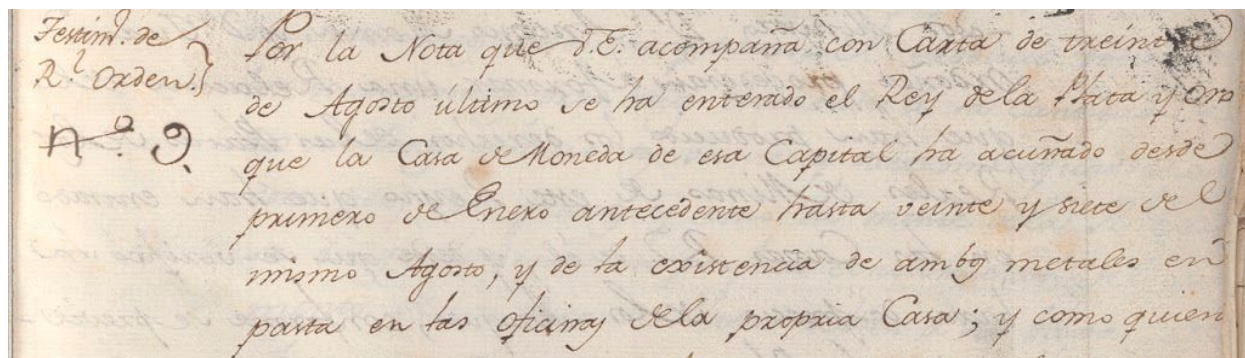 Testim.º de
R.l Orden.
nº. 9.
Por la Nota que V.E. acompaña con Carta de treinta
de Agosto último se ha enterado el Rey dela Plata y Oro
que la Casa de Moneda de esa Capital ha acuñado desde
primero de Enero antecedente hasta veinte y siete del
mismo Agosto, y de la existencia de ambos metales en
pasta en las oficinas dela propria Casa; y como quien